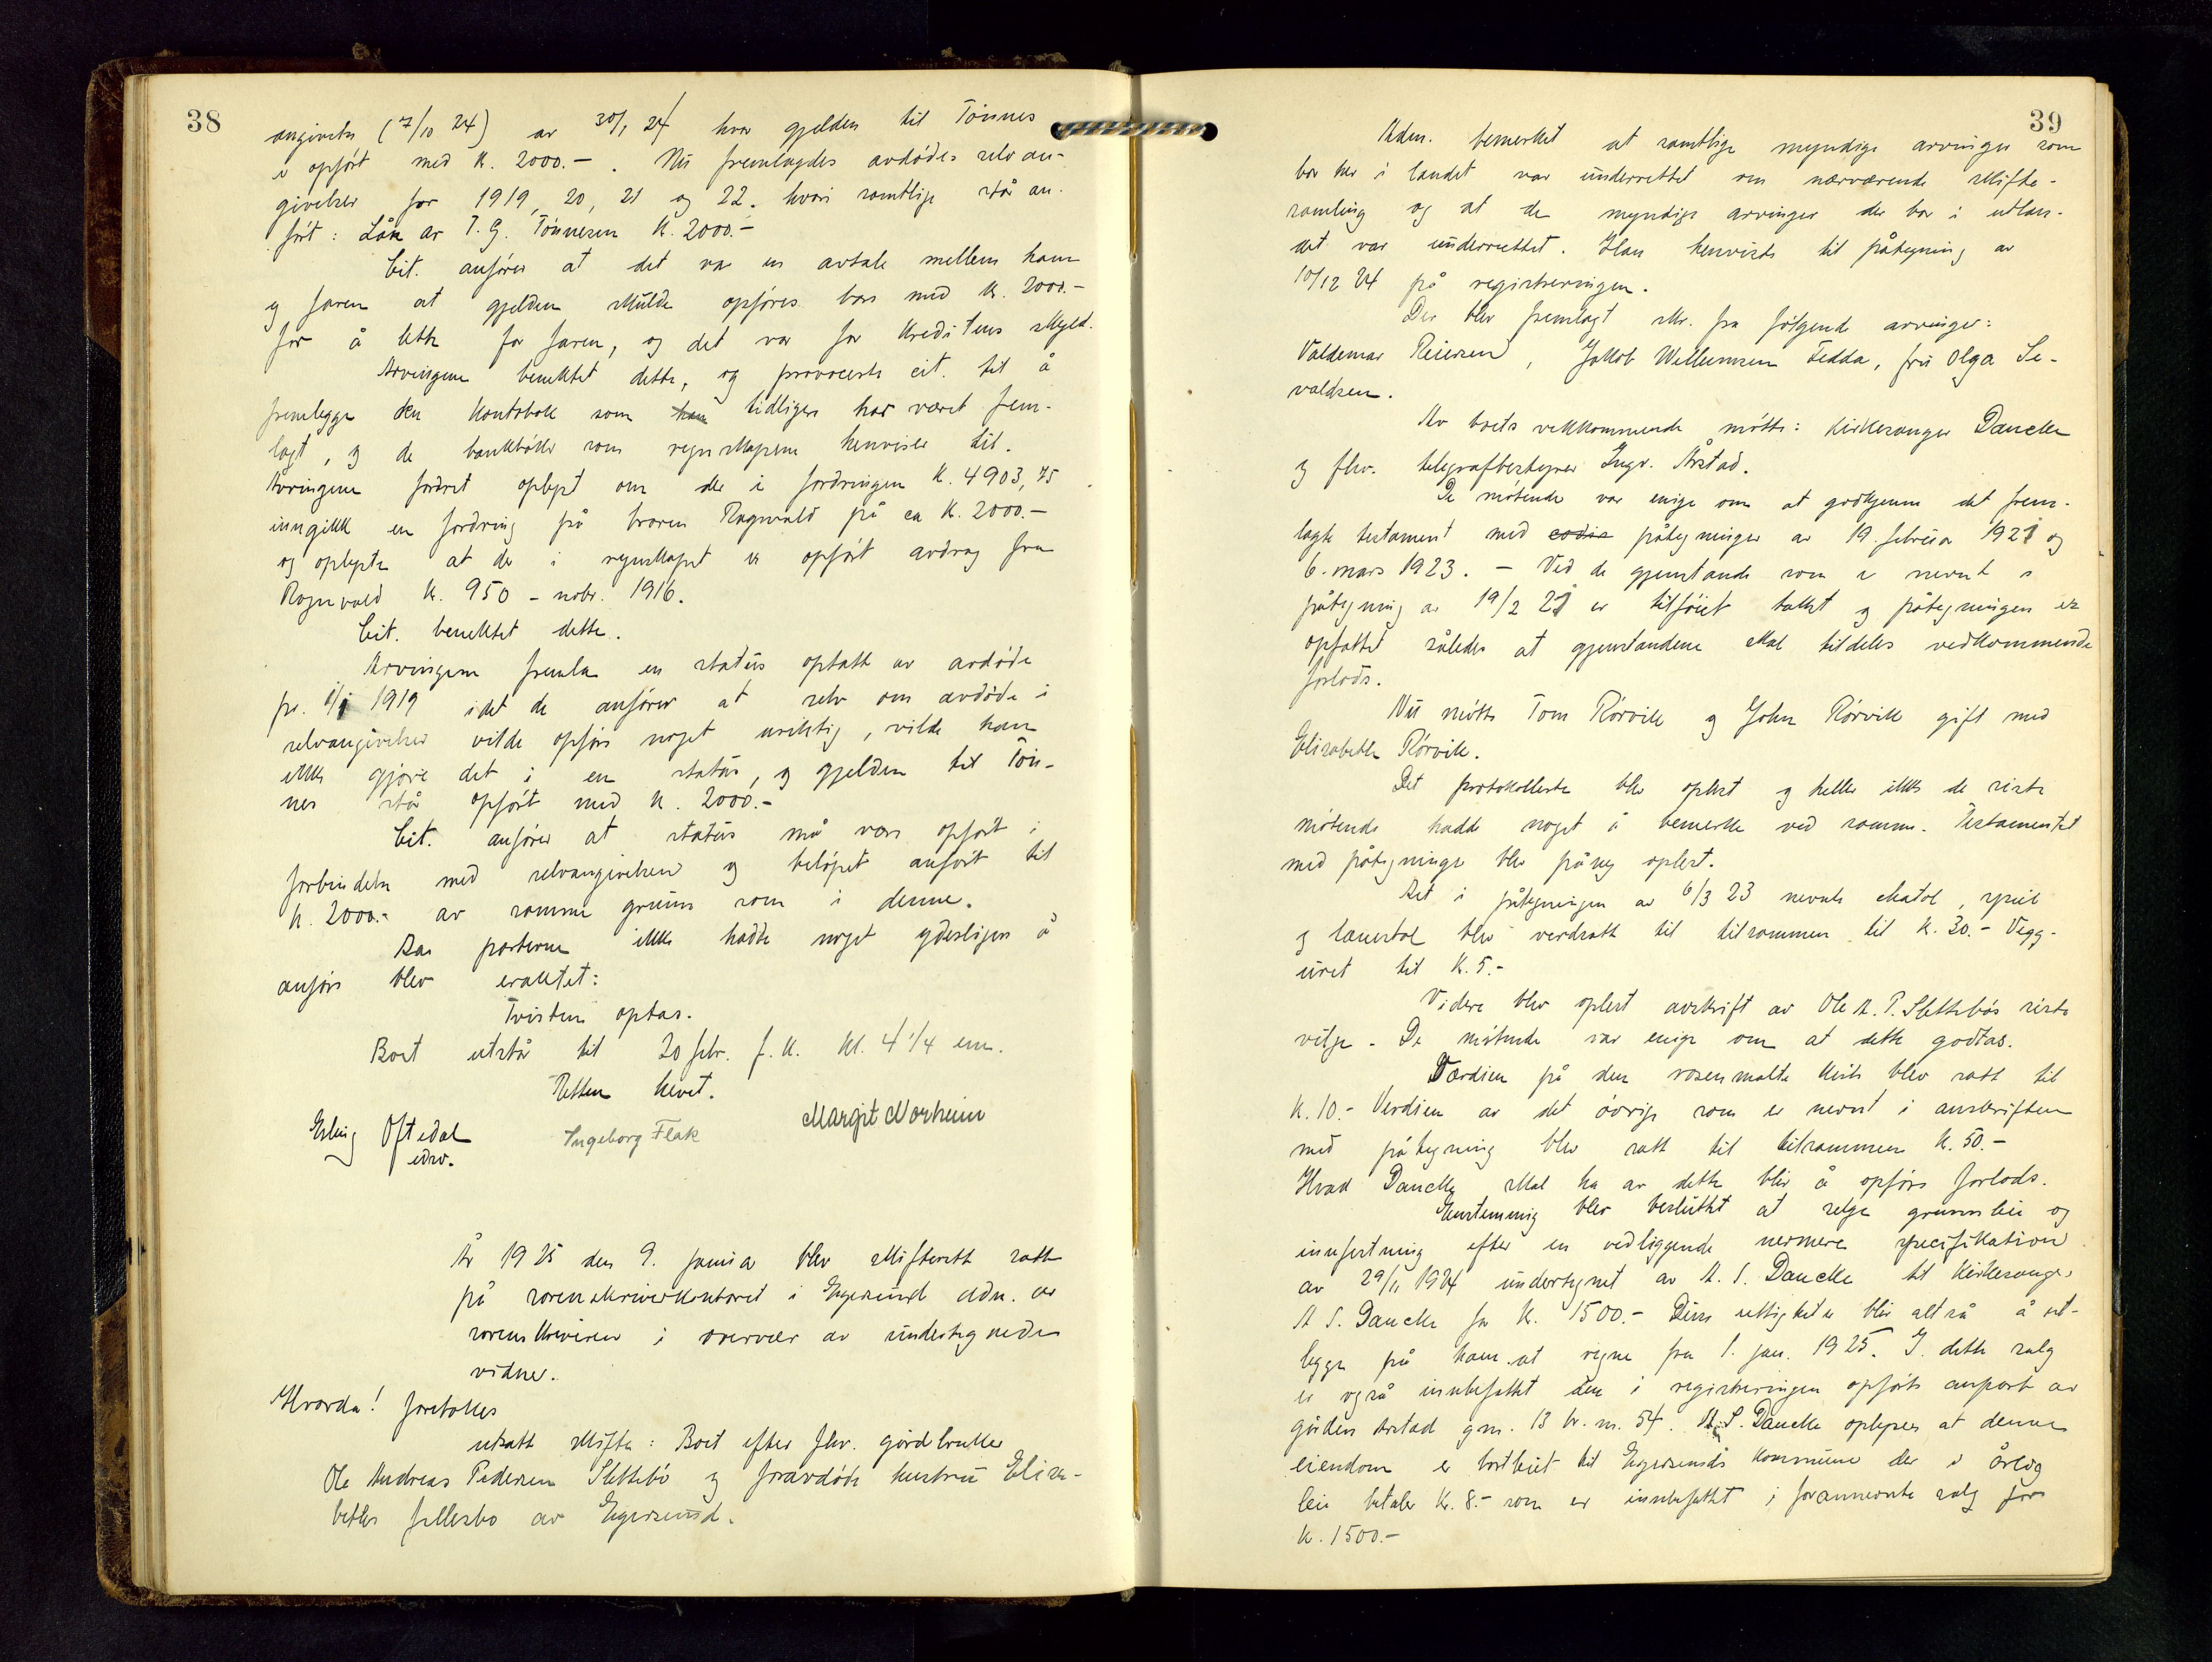 38
angivelse (7/10 24) av 30/1 24 hvor gjelden til Tønnes
er opført med k. 2000.- . Nu fremlagdes avdødes selvan-
givelser for 1919, 20, 21 og 22. hvori samtlige står an-
ført: Lån av T. G. Tønnesen k. 2000.-
Cit. anfører at det var en avtale mellem ham
og faren at gjelden skulde opføres bare med k. 2000.-
for å lette for faren, og det var for kredittens skyld.
Arvingene benektet dette, og provoserte cit. til å
fremlegge den kontobok som han tidligere har været frem-
lagt, og de bankbøker som regnskapene henviser til.
Arvingene fordret oplyst om der i fordringen k. 4903,75
inngikk en fordring på broren Ragnvald på ca k. 2000.-
og oplyste at der i regnskapet er opført avdrag fra
Ragnvald k. 950 - nobr. 1916.
Cit. benektet dette.
Arvingene fremla en status optatt av avdøde
pr. 1/1 1919 idet de anfører at selv om avdøde i
selvangivelser vilde opføre noget uriktig, vilde han
ikke gjøre det i en status, og gjelden til Tøn-
nes står opført med k. 2000.-
Cit. anfører at status må være opført i
forbindelse med selvangivelsen og beløpet anført til
k. 2000.- av samme grunn som i denne.
Da parterne ikke hadde noget yderligere å
anføre blev eraktet:
Tvisten optas.
Boet utstår til 20 febr. f. k. kl. 4 1/4 em.
Retten hevet.
Erling Oftedal Ingeborg Flak Margit Norheim
edsv.
År 1925 den 9. januar blev skifterett satt
på sorenskriverkontoret i Egersund adm. av
sorenskriveren i overvær av undertegnede
vidner.
Hvorda! foretokes
utsatt skifte: Boet efter fhv. gårdbruker
Ole Andreas Pedersen Slettebø og foravdøde hustru Elisa-
beths fellesbo av Egersund.
39
Adm. bemerket at samtlige myndige arvinger som
bor her i landet var underrettet om nærværende skifte-
samling og at de myndige arvinger der bor i utlan-
det var underrettet. Han henviste til påtegning av
10/12 24 på registreringen.
Der blev fremlagt skr. fra følgende arvinger:
Valdemar Reiersen, Jakob Willumsen Fedda, fru Olga Se-
valdsen.
Av boets vedkommende møtte: Kirkesanger Dancke
og fhv. telegrafbestyrer Ingv. Årstad.
De møtende var enige om at godkjenne det frem-
lagte testament med påtegninger av 19. februar 1921 og
6. mars 1923. - Ved de gjenstande som er nevnt i
påtegning av 19/2 21 er tilføiet takst og påtegningen er
opfattet således at gjenstandene skal tildeles vedkommende
forlods.
Nu møtte Tom Rørvik og John Rørvik gift med
Elisabeth Rørvik.
Det protokollerte blev oplest og heller ikke de siste
møtende hadde noget å bemerke ved samme. Testamentet
med påtegninger blev påny oplest.
Det i påtegningen av 6/3 23 nevnte chatol, speil
og lænestol blev verdsatt til tilsammen til k. 30.- Vegg-
uret til k. 5.-
Videre blev oplest avskrift av Ole A. P. Slettebøs siste
vilje. De møtende var enige om at dette godtas.
Værdien på den rosenmalte kiste blev satt til
k. 10.- Verdien av det øvrige som er nevnt i avskriften
med påtegning blev satt til tilsammen k. 50.-
Hvad Dancke skal ha av dette blir å opføre forlods.
Enstemmig blev besluttet at selge grunnleie og
innfestning efter en vedliggende nermere specifikation
av 29/11 1924 undertegnet av A. S. Dancke til Kirkesanger
A S. Dancke for k. 1500.- Disse rettigheter blir altså å ut-
legge på ham at regne fra 1. jan. 1925. I dette salg
er også innbefattet den i registreringen opførte anpart av
gården Årstad gnr. 13 br. nr. 54. A. S. Dancke oplyser at denne
eiendom er bortleiet til Egersunds kommune der i årlig
leie betaler kr. 8.- som er innbefattet i forannevnte salg for
k. 1500.-